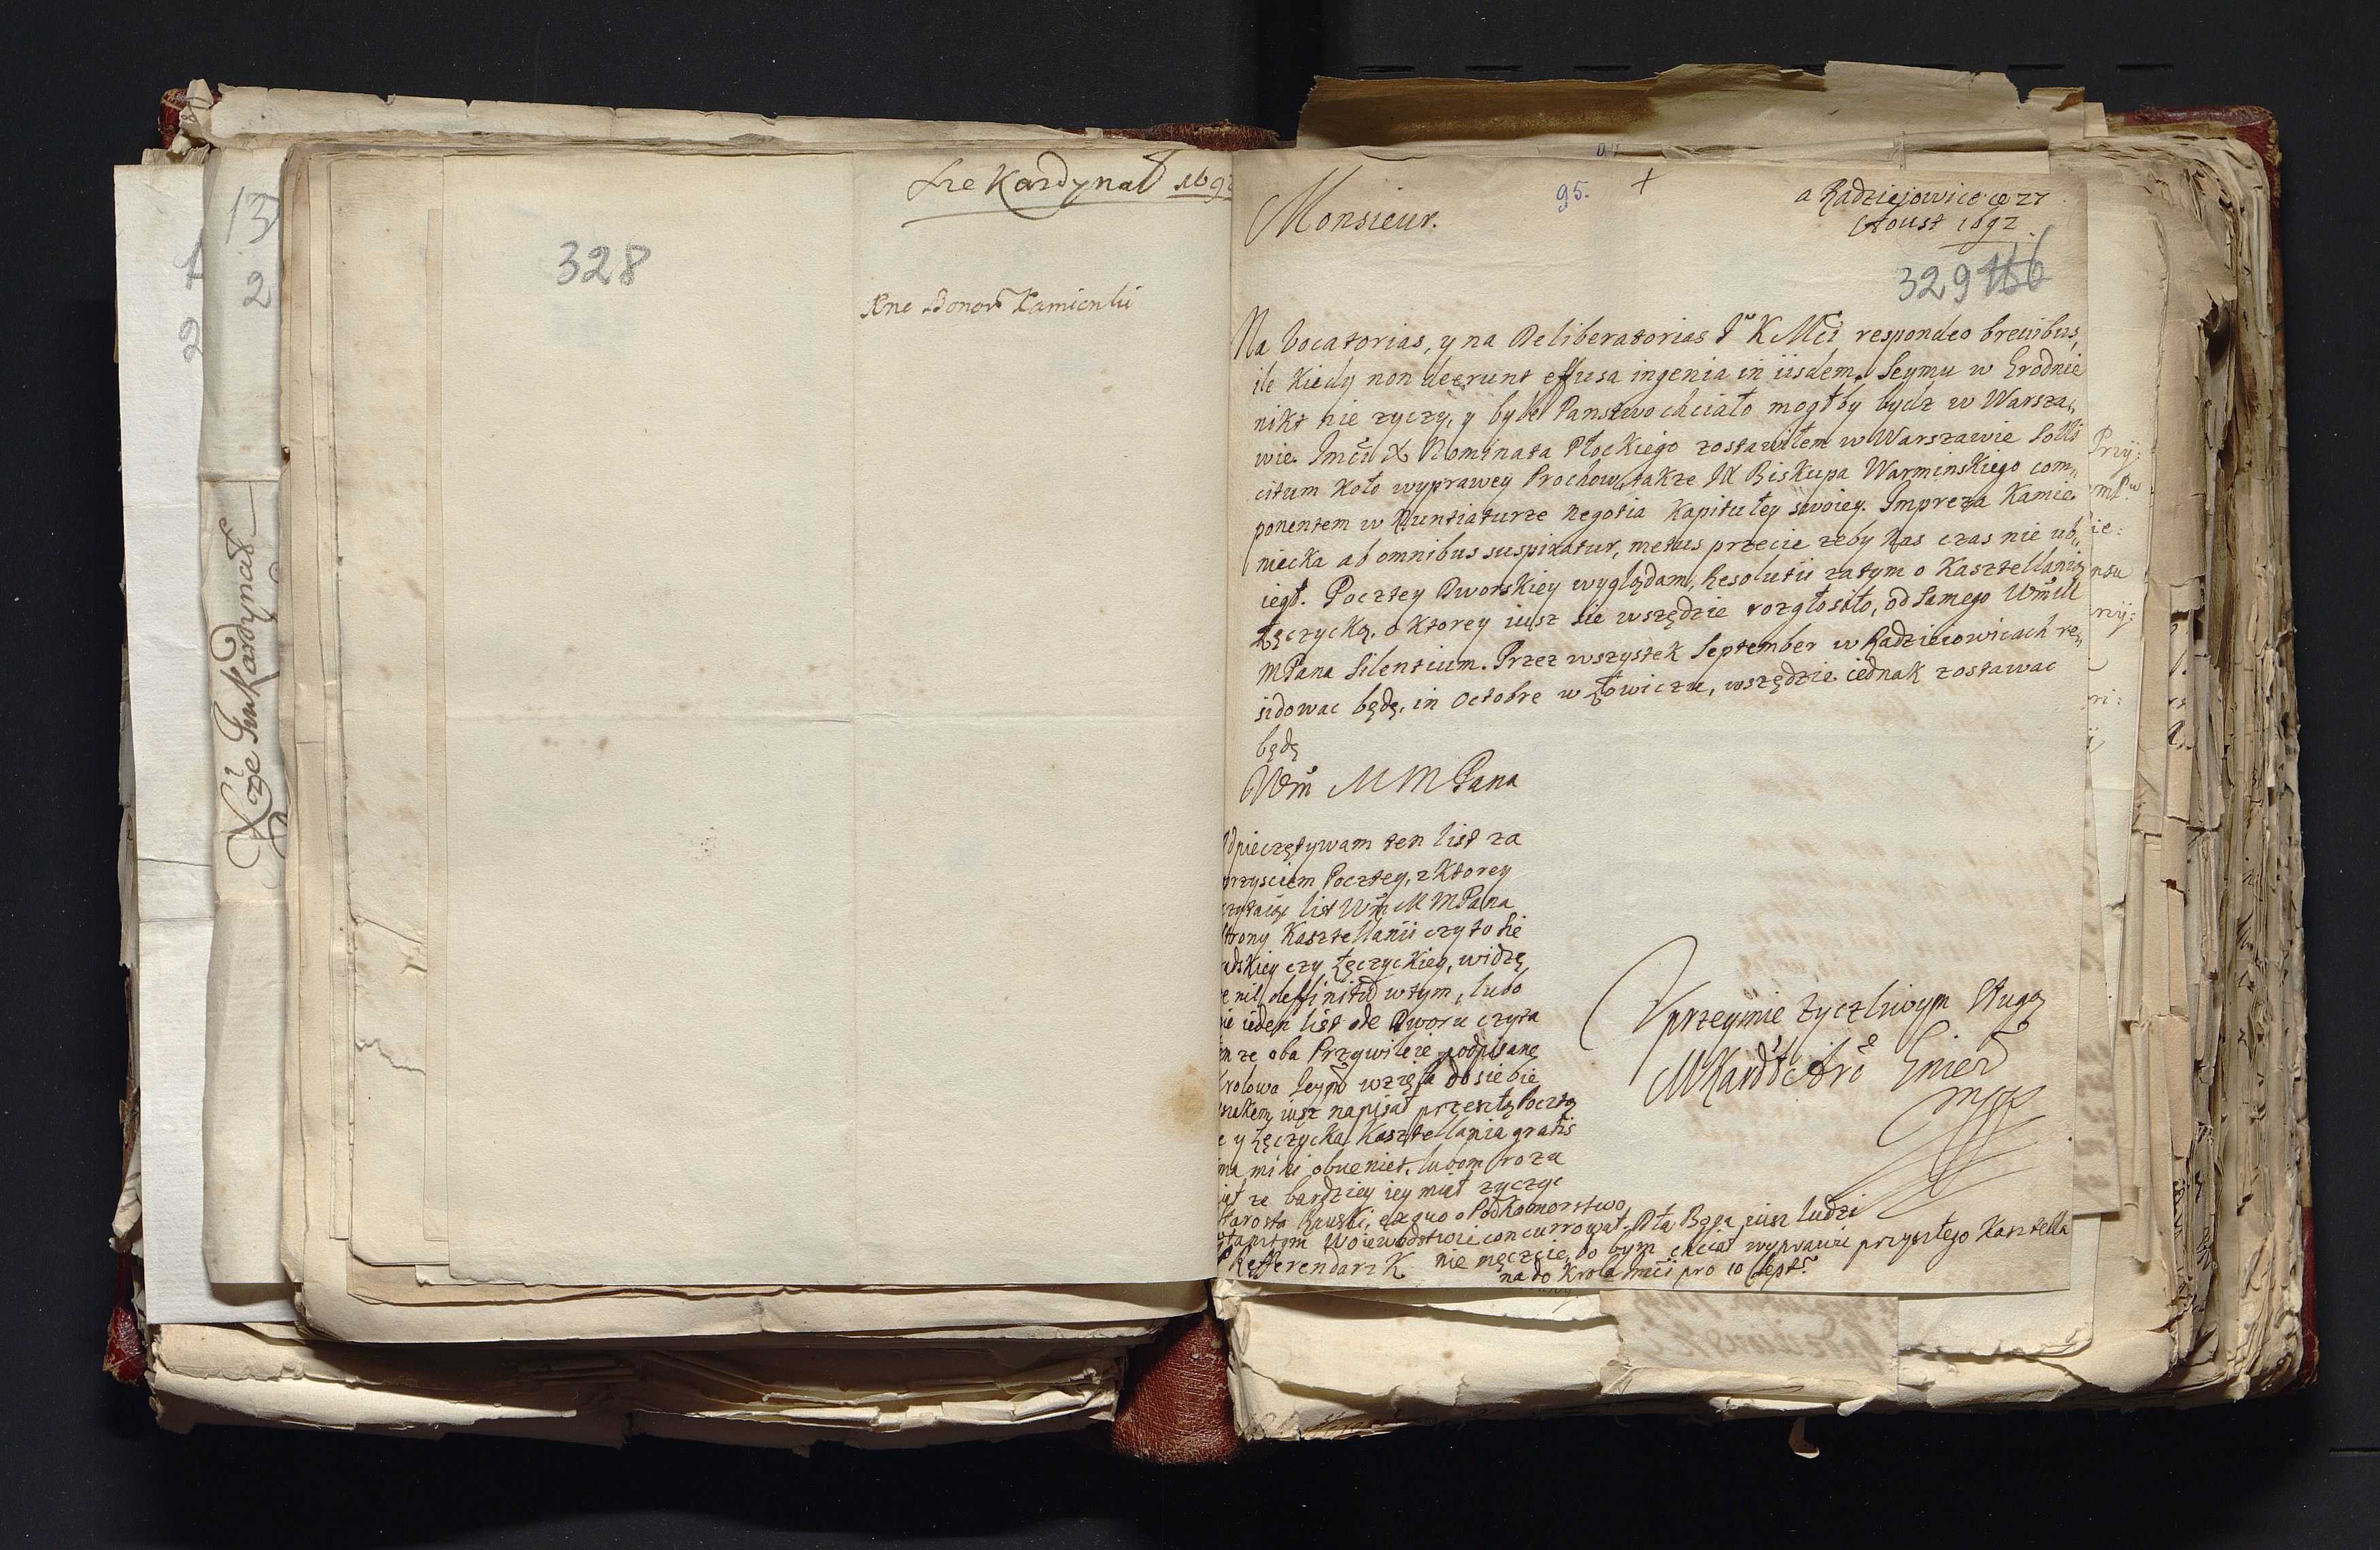 13
2
1
2
Xże Jm Kardynał
Xże Kardynał 169
328
Rne Bonor Kamienski
95.
+
Monsieur.
a Radziejowice ce 27
Aoust 1692
329 166
Na Vocatorias, y na Deliberatorias J K Mci respondeo brevibus,
ile kiedy non deerunt effusa ingenia in iisdem. Seymu w Grodnie
nikt nie zyczy, y byle Panstwo chciało mogłby bydz w Warsza„
wie. Jmci X Nominata Płockiego zostawiłem w Warszawie Solli
citum koło wyprawey Prochow, także JX Biskupa Warminskiego com„
ponentem w Nuntiaturze negotia Kapituley swoiey. Impreza Kamie
niecka ab omnibus suspiratur, metus przecie zeby nas czas nie ub„
iegł. Pocztey Dworskiey wyglądam, Resolutii zatym o Kasztellanią
Łęczycką, o ktorey iusz sie wszędzie rozgłosiło, od samego Wm M
MPana Silentium. Przez wszystek September w Radzieiowicach re„
sidowac będę, in Octobre w Łowiczu, wszędzie iednak zostawac
będę
Wm M M Pana
dpieczętywam ten list za
przysciem Pocztey, z ktorey
czytaiąc list Wm M MPana
strony Kasztellanii czy to Sie
adskiey czy Łęczyckiey, widzę
e nil deffinitu w tym, lubo
ie ieden list ode Dworu czyta
m ze oba Przywileie podpisane
rolowa Jey wzięła do siebie
iusz napisał przeszłą Pocztą
e y Łęczycka Kasztellania gratis
ma mihi obueniet, lubom rozu
iał ze bardziey iey miał zyczyc
tarosta Rawski, ex quo o Podkomorstwo
tamtym Woiewodstwie concurrował, Dla Boga iusz ludzi
Referendarz K nie męczcie, bo bym chciał wyprawic przyszłego Kasztella
na do Krola Jmci pro 10 Septr
Vprzeymie zyczliwym Sługą
M Kard Ar Gniez
mpp